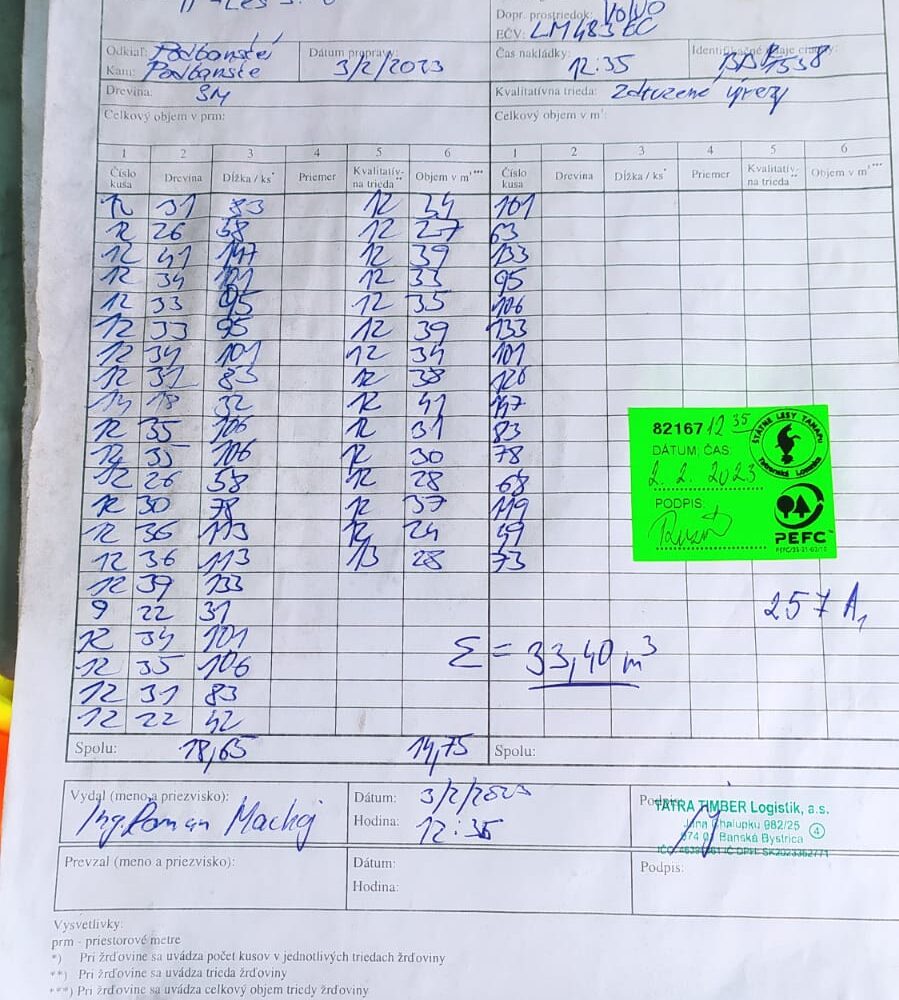 Dopr. prostriedok: VOLVO
EČV: LM483EC
Odkiaľ: Podbanské
Kam: Podbanské
Dátum prepravy: 3/2/2023
Čas nakládky: 12:35
Drevina: SM
Kvalitatívna trieda: Združené výrezy
Celkový objem v prm:
Celkový objem v m³:
1 2 3 4 5 6 1 2 3 4 5 6
Číslo kusa Drevina Dĺžka / ks* Priemer Kvalitatív-na trieda** Objem v m³*** Číslo kusa Drevina Dĺžka / ks* Priemer Kvalitatív-na trieda** Objem v m³***
12 31 83 12 34 101
12 26 58 12 27 63
12 41 147 12 39 133
12 34 101 12 33 95
12 33 95 12 35 106
12 33 95 12 39 133
12 34 101 12 34 101
12 31 83 12 38 126
14 18 32 12 41 147
12 35 106 12 31 83
12 35 106 12 30 78
12 26 58 12 28 68
12 30 78 12 37 119
12 36 113 12 24 49
12 36 113 13 28 73
12 39 133
9 22 31
12 34 101
12 35 106
12 31 83
12 22 42
82167 12 35
DÁTUM ČAS:
2. 2. 2023
PODPIS:
ŠTÁTNE LESY TANAPu
Tatranská Lomnica
PEFC™
257 A1
Σ = 33,40 m³
Spolu: 18,65 14,75 Spolu:
Vydal (meno a priezvisko):
Ing. Roman Machaj
Dátum: 3/2/2023
Hodina: 12:35
Podpis:
TATRA TIMBER Logistik, a.s.
Jána Chalupku 982/25
974 01 Banská Bystrica
4
Prevzal (meno a priezvisko):
Dátum:
Hodina:
Podpis:
Vysvetlivky:
prm - priestorové metre
*) Pri žrďovine sa uvádza počet kusov v jednotlivých triedach žrďoviny
**) Pri žrďovine sa uvádza trieda žrďoviny
***) Pri žrďovine sa uvádza celkový objem triedy žrďoviny